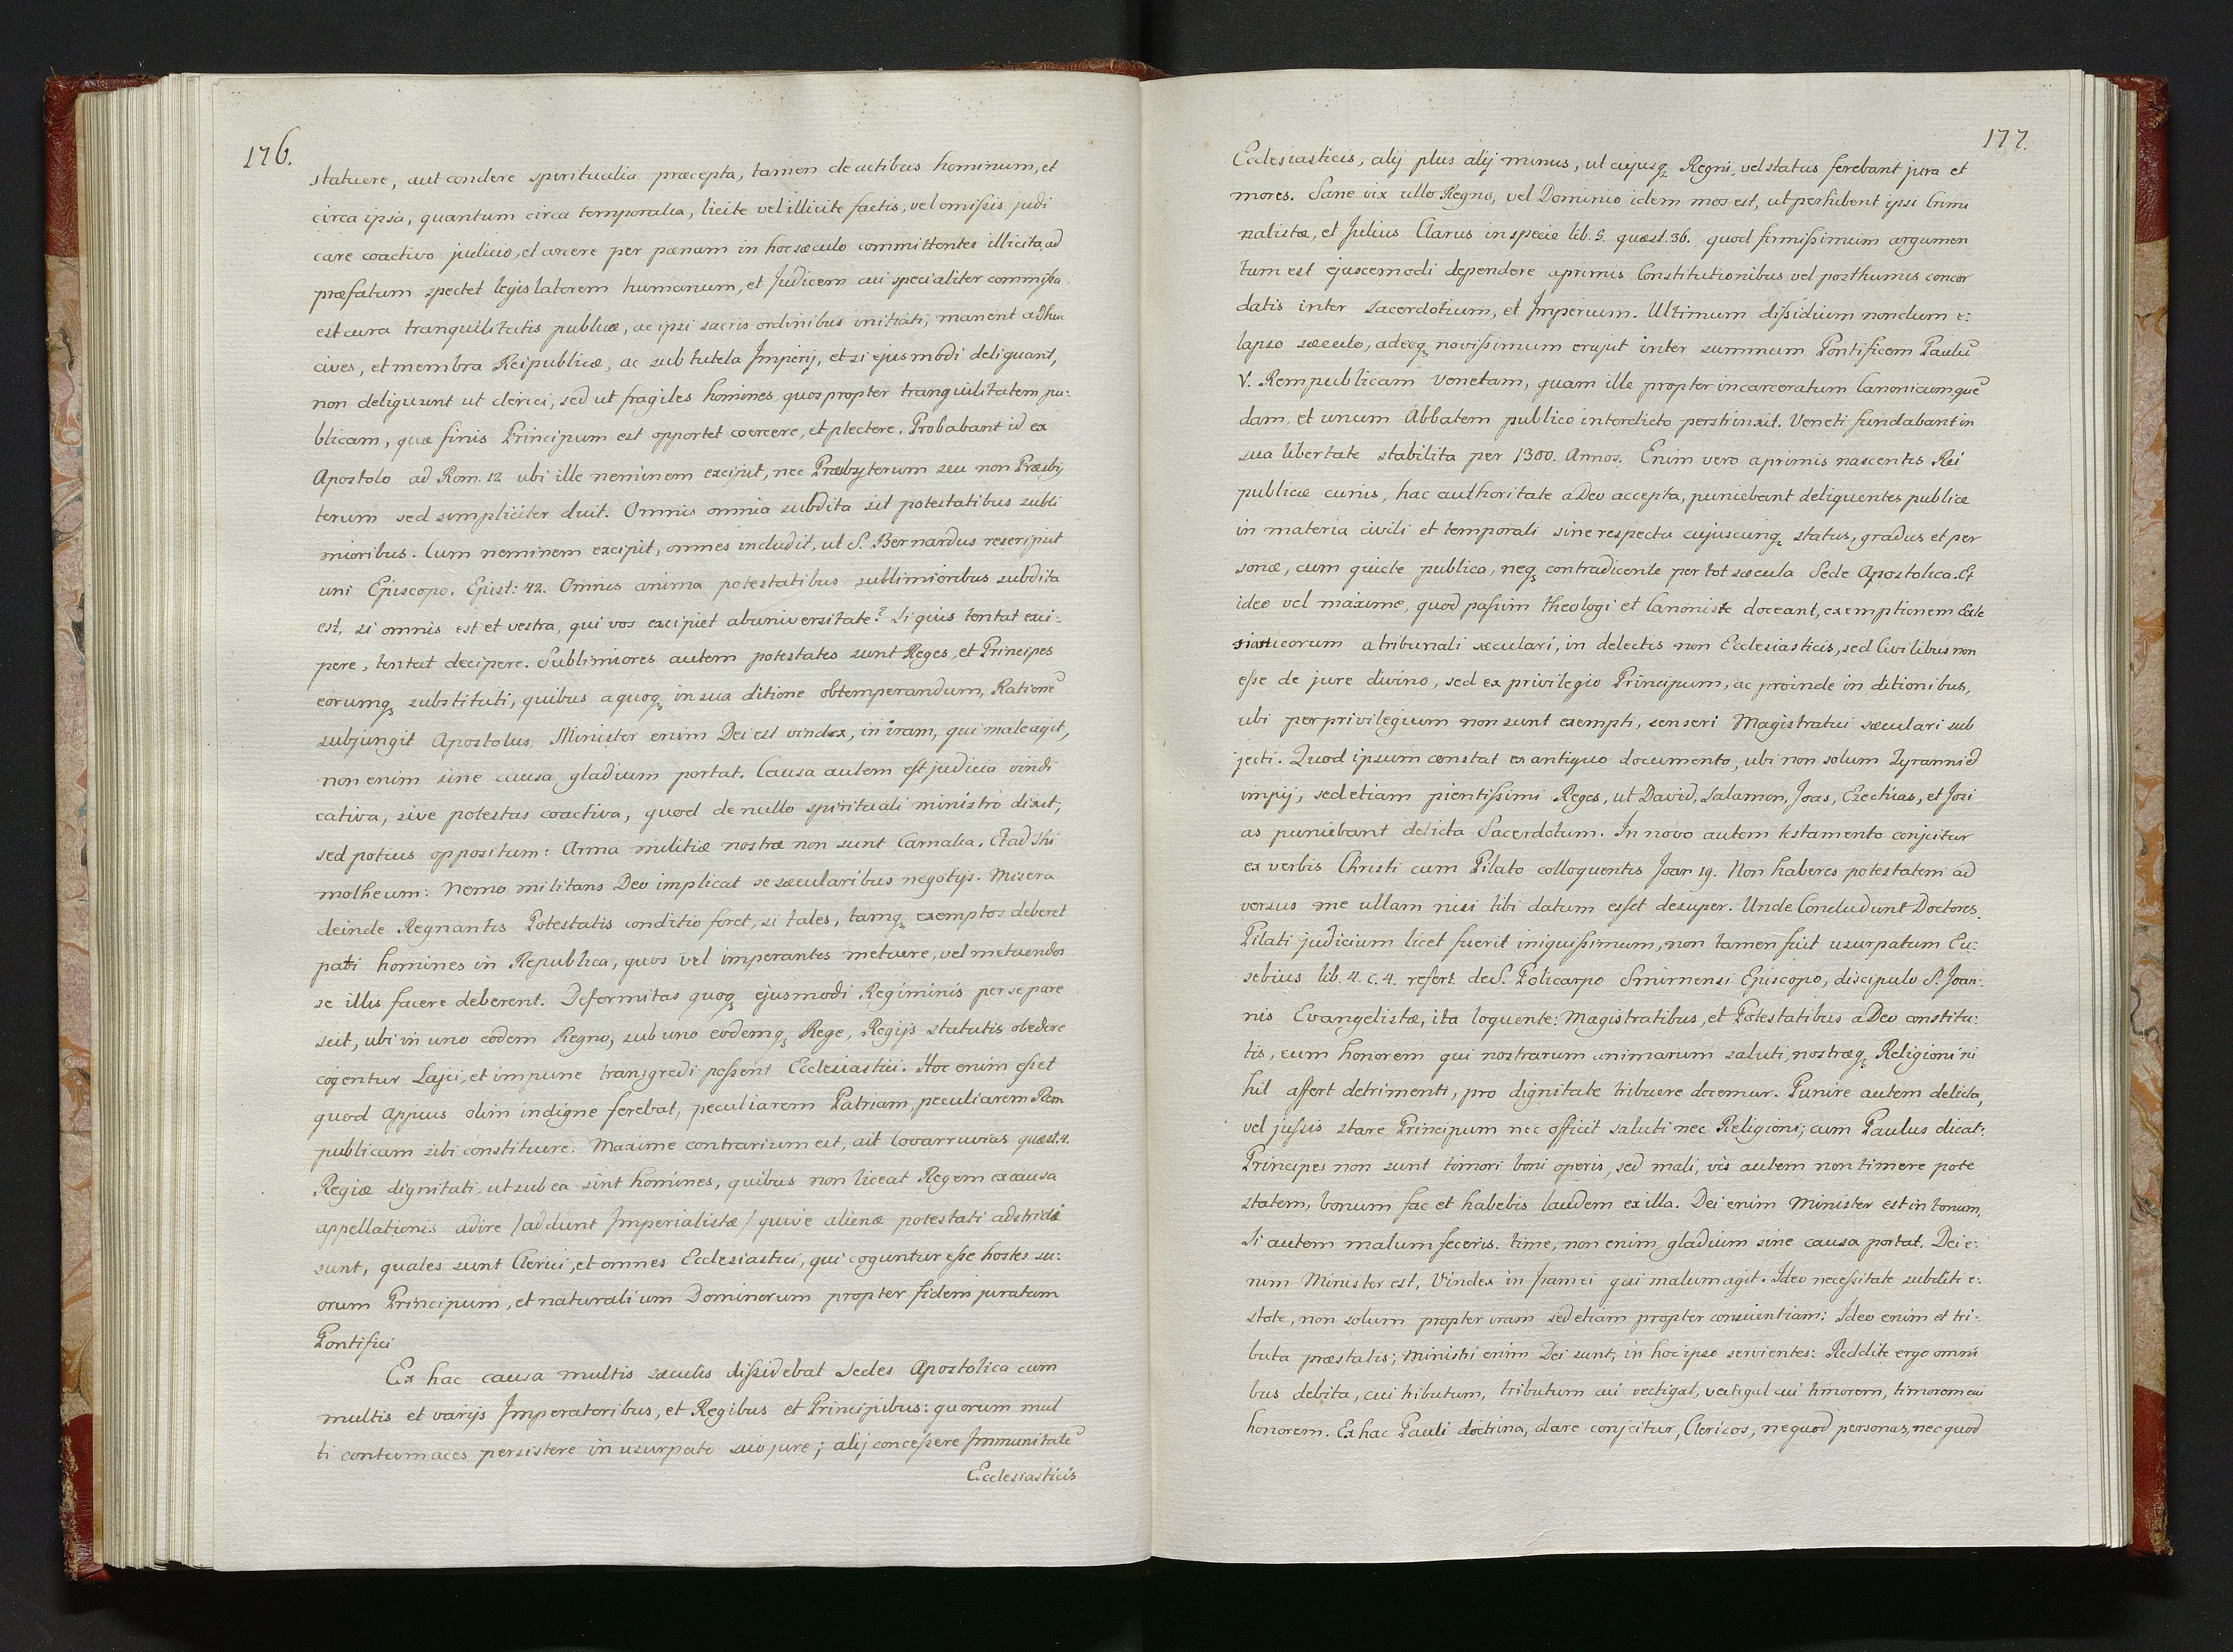 176.
statuere, aut condere spiritualia præcepta, tamen de actibus hominum, et
circa ipsa, quantum circa temporalia, licite vel illicite factis, vel omissis judi
care coactivo judicio, et arcere per pænam in hoc sæculo committentes illicita, ad
præfatum spectet legislatorem humanum, et Judicem cui specialiter commissa
est cura tranquilitatis publicæ, ac ipsi sacris ordinibus initiati, manent adhuc
cives, et membra Reipublicæ, ac sub tutela Imperij, et si ejusmodi deliquant,
non deliquunt ut clerici, sed ut fragiles homines, quos propter tranquilitatem pu:
blicam, quæ finis Principum est opportet coercere, et plectere. Probabant id ex
Apostolo ad Rom. 12 ubi ille neminem excipit, nec Præsbyterum seu non Præsby
terum sed simpliciter dicit. Omnis omnia subdita sit potestatibus subli
mioribus. Cum neminem excipit, omnes includit, ut S. Bernardus rescripsit
uni Episcopo. Epist: 42. Omnis anima potestatibus sublimioribus subdita
est, si omnis est et vestra, qui vos excipiet ab universitate? Si quis tentat exci:
pere, tentat decipere. Sublimiores autem potestates sunt Reges, et Principes
eorumq substituti, quibus a quoq in sua ditione obtemperandum, Rationē
subjungit Apostolus, Minister enim Dei est vindex, in iram, qui male agit,
non enim sine causa gladium portat. Causa autem est judicia vindi
cativa, sive potestas coactiva, quod de nullo spirituali ministro dixit,
sed potius oppositum: Arma militiæ nostræ non sunt Carnalia. Et ad Thi
motheum: Nemo militans Deo implicat se sæcularibus negotijs. Misera
deinde Regnantis Potestatis conditio foret, si tales, tamq exemptos deberet
pati homines in Republica, quos vel imperantes metuere, vel metuendos
se illis facere deberent. Deformitas quoq ejusmodi Regiminis per se pare
scit, ubi in uno eodem Regno, sub uno eodemq Rege, Regijs statutis obedire
cogentur Lajci, et impune transgredi possent Ecclesiastici. Hoc enim esset
quod Appius olim indigne ferebat, peculiarem Patriam, peculiarem Rem
publicam sibi constituere. Maxime contrarium est, ait Covarruvias quæst. 4.
Regiæ dignitati, ut sub ea sint homines, quibus non liceat Regem ex causa
appellationis adire /addunt Imperialistæ/ quive alienæ potestati adstricti
sunt, quales sunt Clerici, et omnes Ecclesiastici, qui coguntur esse hostes su:
orum Principum, et naturalium Dominorum propter fidem juratam
Pontifici
Ex hac causa multis sæculis dissidebat Sedes Apostolica cum
multis et varijs Imperatoribus, et Regibus et Principibus: quorum mul
ti contumaces persistere in usurpato suo jure; alij concessere Immunitatē
Ecclesiasticis
177.
Ecclesiasticis, alij plus alij minus, ut cujusq Regni, vel status ferebant jura et
mores. Sane vix ullo Regno, vel Dominio idem mos est, ut perhibent ipsi Crimi
nalistæ, et Julius Clarus in specie lib. 5. quæst. 36. quod firmissimum argumen
tum est ejuscemodi dependere a primis Constitutionibus vel posthumis concor
datis inter Sacerdotium, et Imperium. Ultimum dissidium nondum e:
lapso sæculo, adeoq novissimum erupit inter summum Pontificem Paulū
V. Rempublicam Venetam, quam ille propter incarceratum Canonicum quē
dam, et unum Abbatem publico interdicto perstrinxit. Veneti fundabant in
sua libertate stabilita per 1300. Annos. Enim vero a primis nascentis Rei
publicæ cunis, hac authoritate a Deo accepta, puniebant deliquentes publice
in materia civili et temporali sine respectu cujuscunq status, gradus et per
sonæ, cum quiete publica, neq contradicente per tot sæcula Sede Apostolica. Et
ideo vel maxime, quod passim theologi et Canonistæ doceant, exemptionem Eccle
siasticorum a tribunali sæculari, in delectis non Ecclesiasticis, sed Civilibus non
esse de jure divino, sed ex privilegio Principum, ac proinde in ditionibus,
ubi per privilegium non sunt exempti, censeri Magistratui sæculari sub
jecti. Quod ipsum constat ex antiquo documento, ubi non solum Tyranni ed
impij, sed etiam pientissimi Reges, ut David, Salamon, Joas, Ezechias, et Josi
as puniebant delicta Sacerdotum. In novo autem testamento conjicitur
ex verbis Christi cum Pilato colloquentis Joan 19. Non haberes potestatem ad
versus me ullam nisi tibi datum esset desuper. Unde Concludunt Doctores.
Pilati judicium licet fuerit iniquissimum, non tamen fuit usurpatum Eu:
sebius lib. 4. c. 4. refert de S. Policarpo Smirnensi Episcopo, discipulo S. Joan:
nis Evangelistæ, ita loquente: Magistratibus, et Potestatibus a Deo constitu:
tis, eum honorem qui nostrarum animarum saluti, nostræq Religioni ni
hil affert detrimenti, pro dignitate tribuere docemur. Punire autem delicta,
vel jussis stare Principum nec officit saluti nec Religioni; cum Paulus dicat:
Principes non sunt timori boni operis, sed mali, vis autem non timere pote
statem, bonum fac et habebis laudem ex illa. Dei enim Minister est in bonum,
Si autem malum feceris. time, non enim gladium sine causa portat. Dei e:
nim Minister est, Vindex in Iram ei qui malum agit. Ideo necessitate subditi e:
stote, non solum propter iram sed etiam propter conscientiam: Ideo enim et tri:
buta præstatis; Ministri enim Dei sunt, in hoc ipso servientes: Reddite ergo omni
bus debita, cui tributum, tributum cui vectigal, vectigal cui timorem, timorem cui
honorem. Ex hac Pauli doctrina, clare conjicitur, Clericos, ne quod personas, nec quod